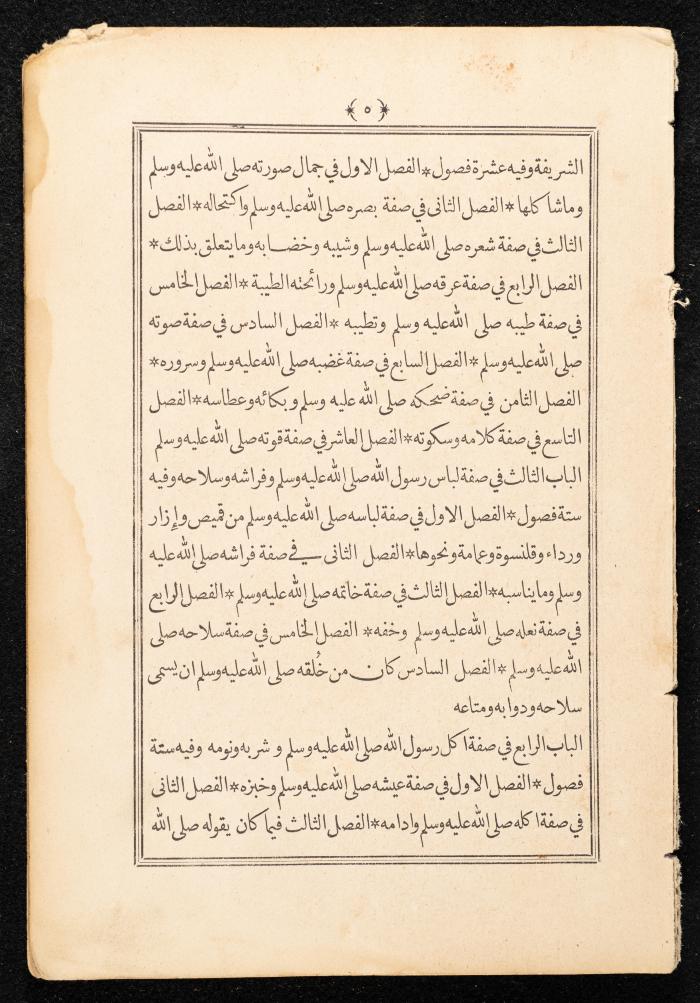 ﴿ ٥ ﴾
الشريفة وفيه عشرة فصول * الفصل الاول في جمال صورته صلى الله عليه وسلم
وماشاكلها * الفصل الثانى في صفة بصره صلى الله عليه وسلم واكتحاله * الفصل
الثالث في صفة شعره صلى الله عليه وسلم وشيبه وخضابه وما يتعلق بذلك *
الفصل الرابع في صفة عرقه صلى الله عليه وسلم ورائحته الطيبة * الفصل الخامس
في صفة طيبه صلى الله عليه وسلم وتطيبه * الفصل السادس في صفة صوته
صلى الله عليه وسلم * الفصل السابع في صفة غضبه صلى الله عليه وسلم وسروره *
الفصل الثامن في صفة ضحكه صلى الله عليه وسلم وبكائه وعطاسه * الفصل
التاسع في صفة كلامه وسكوته * الفصل العاشر في صفة قوته صلى الله عليه وسلم
الباب الثالث في صفة لباس رسول الله صلى الله عليه وسلم وفراشه وسلاحه وفيه
ستة فصول * الفصل الاول في صفة لباسه صلى الله عليه وسلم من قميص وإزار
ورداء وقلنسوة وعمامة ونحوها * الفصل الثانى في صفة فراشه صلى الله عليه
وسلم وما يناسبه * الفصل الثالث في صفة خاتمه صلى الله عليه وسلم * الفصل الرابع
في صفة نعله صلى الله عليه وسلم وخفه * الفصل الخامس في صفة سلاحه صلى
الله عليه وسلم * الفصل السادس كان من خُلقه صلى الله عليه وسلم ان يسمى
سلاحه ودوابه ومتاعه
الباب الرابع في صفة اكل رسول الله صلى الله عليه وسلم وشربه ونومه وفيه ستة
فصول * الفصل الاول في صفة عيشه صلى الله عليه وسلم وخبزه * الفصل الثانى
في صفة اكله صلى الله عليه وسلم وادامه * الفصل الثالث فيما كان يقوله صلى الله